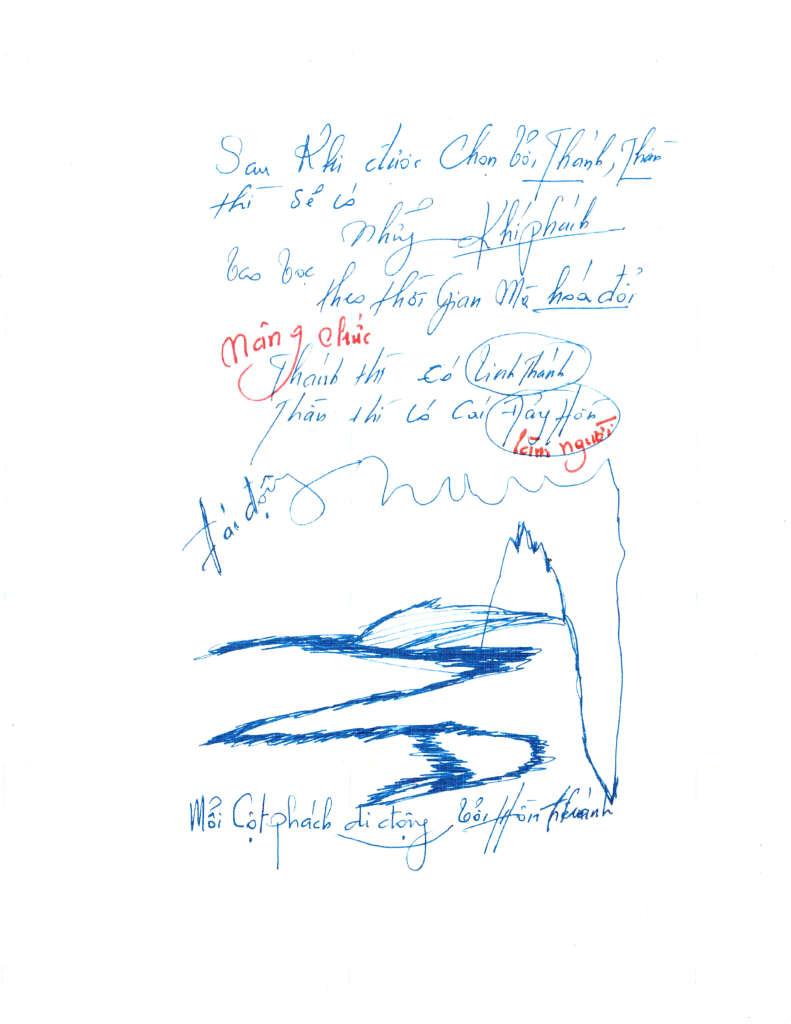 Sau Khi được Chọn bởi Thánh, Thần
thì sẽ có
những Khí phách
bao bọc
theo thời Gian Mà hoá đổi
Nâng chức
Thánh thì có Linh Thánh
Thần thì có Cái Đáy Hồn
làm người
Mỗi Cột phách di động bởi Hồn thánh